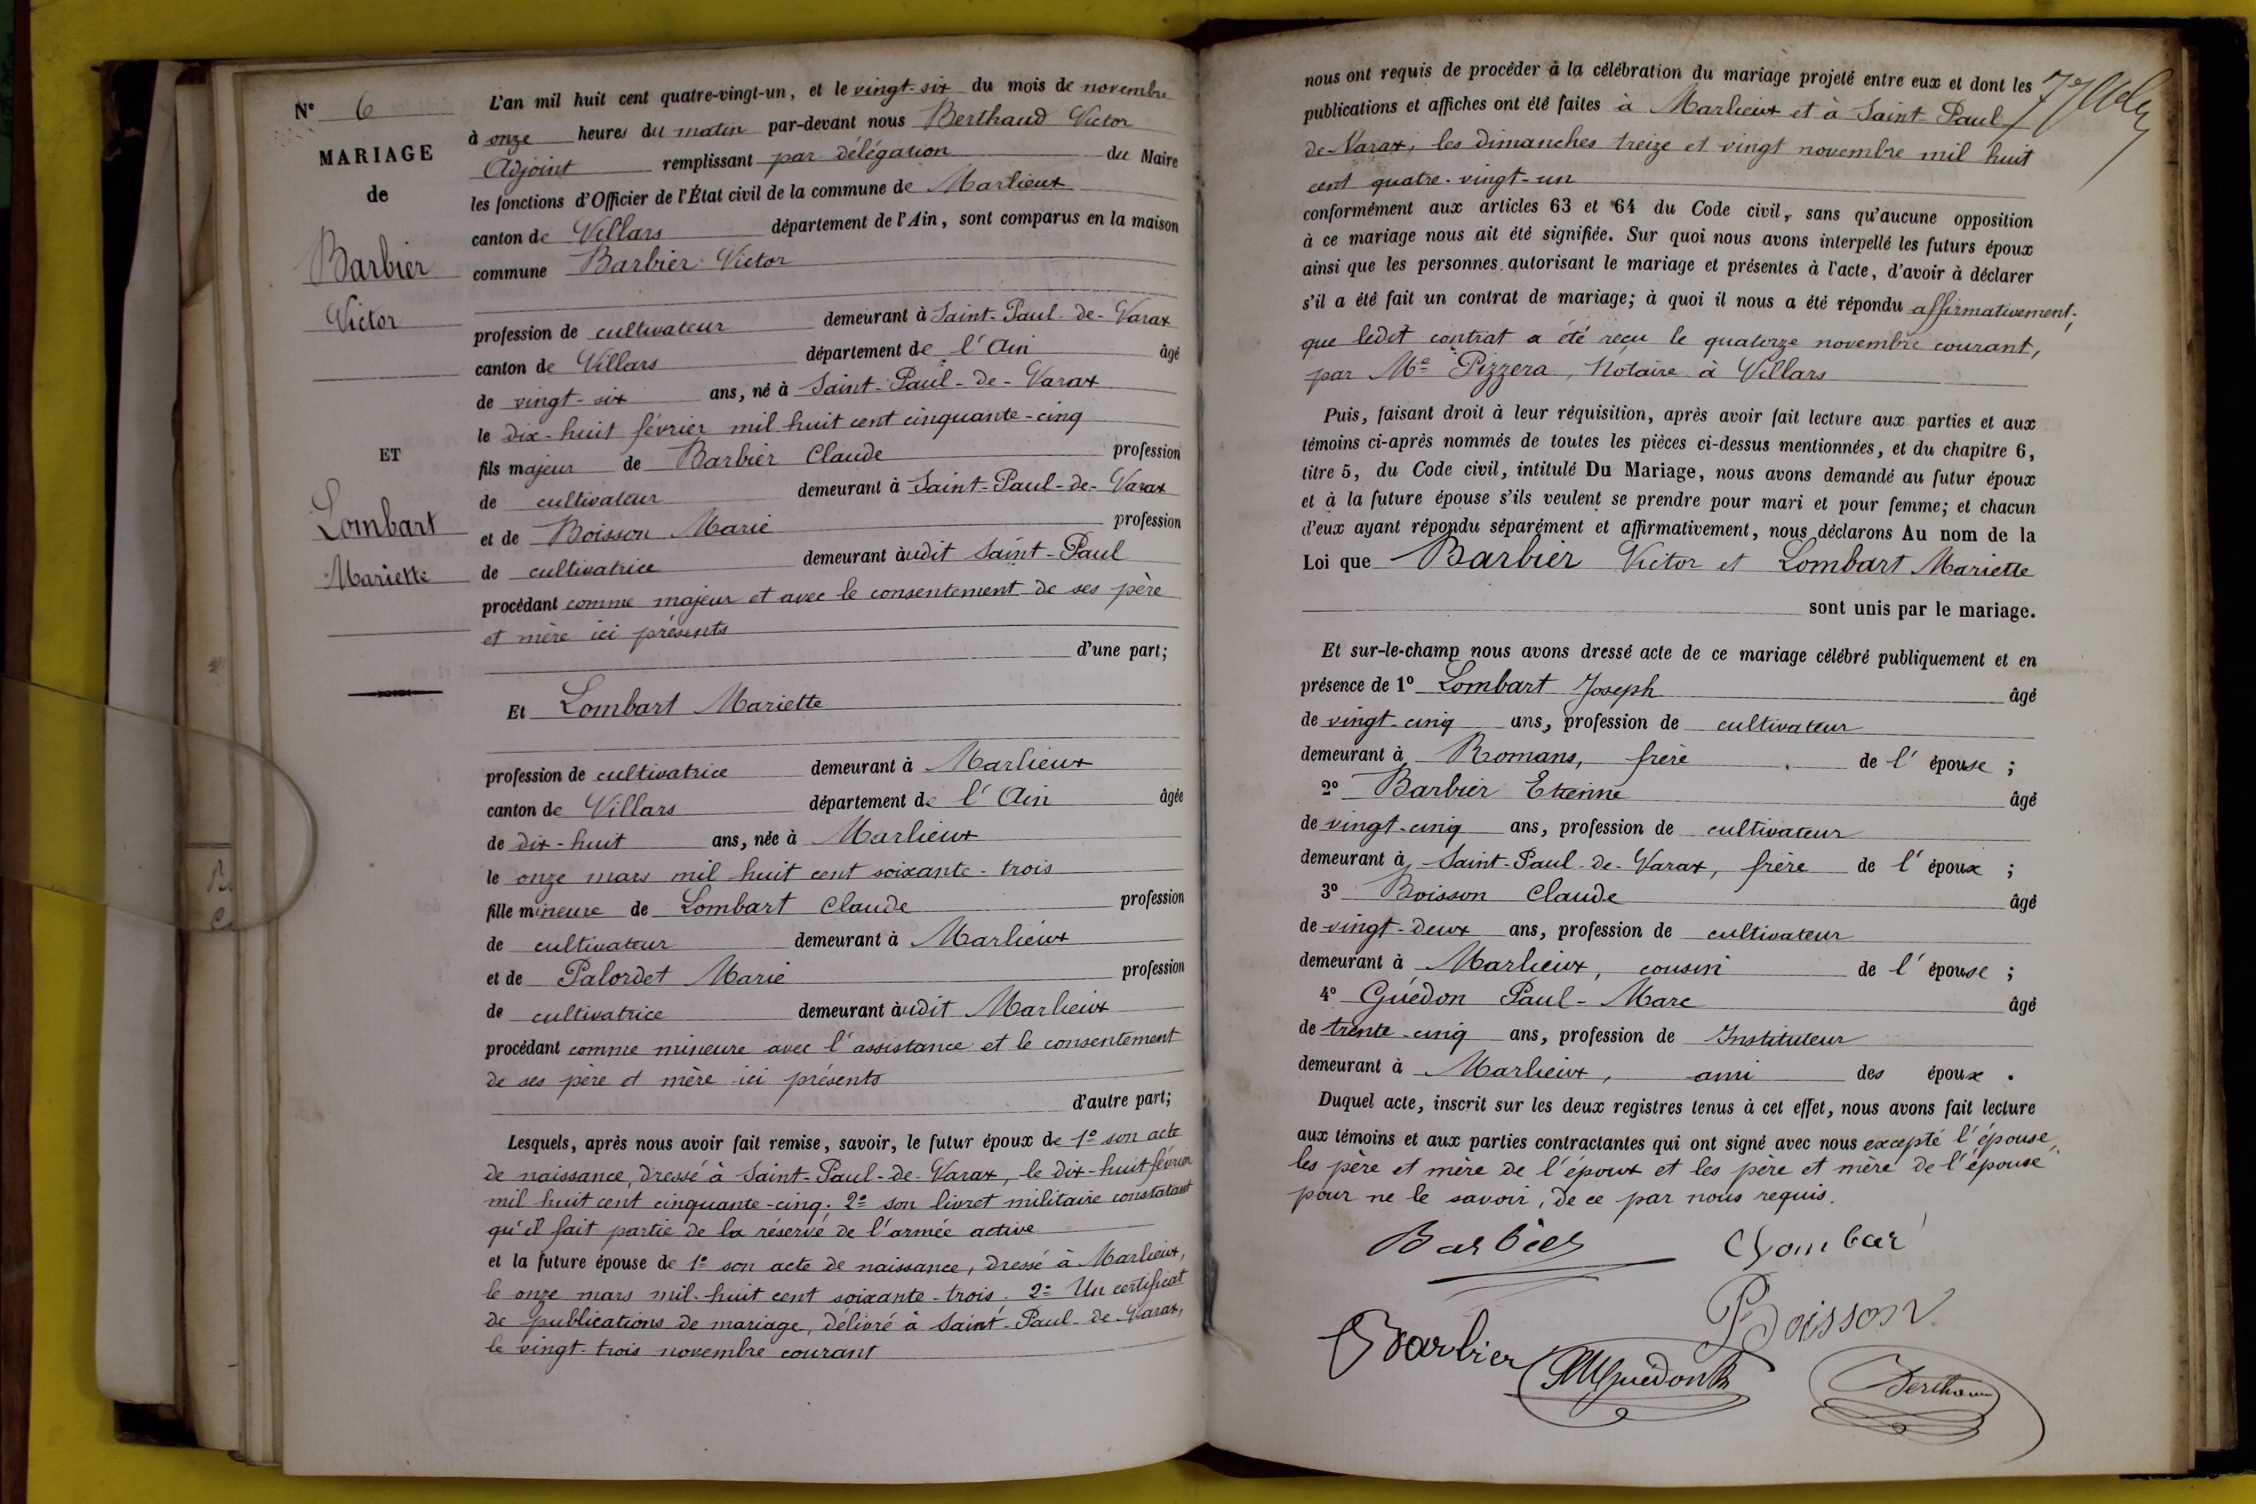 N° 6
MARIAGE
de
Barbier
Victor
ET
Lombart
Mariette
L'an mil huit cent quatre-vingt-un, et le vingt-six du mois de novembre
à onze heures du matin par-devant nous Berthaud Victor
Adjoint remplissant par délégation du Maire
les fonctions d'Officier de l'État civil de la commune de Marlieux
canton de Villars département de l'Ain, sont comparus en la maison
commune Barbier Victor
profession de cultivateur demeurant à Saint-Paul-de-Varax
canton de Villars département de l'Ain âgé
de vingt-six ans, né à Saint-Paul-de-Varax
le dix-huit février mil huit cent cinquante-cinq
fils majeur de Barbier Claude profession
de cultivateur demeurant à Saint-Paul-de-Varax
et de Boisson Marie profession
de cultivatrice demeurant àudit Saint-Paul
procédant comme majeur et avec le consentement de ses père
et mère ici présents
d'une part;
Et Lombart Mariette
profession de cultivatrice demeurant à Marlieux
canton de Villars département de l'Ain âgée
de dix-huit ans, née à Marlieux
le onze mars mil huit cent soixante-trois
fille mineure de Lombart Claude profession
de cultivateur demeurant à Marlieux
et de Palordet Marie profession
de cultivatrice demeurant àudit Marlieux
procédant comme mineure avec l'assistance et le consentement
de ses père et mère ici présents
d'autre part;
Lesquels, après nous avoir fait remise, savoir, le futur époux de 1° son acte
de naissance, dressé à Saint-Paul-de-Varax, le dix-huit février
mil huit cent cinquante-cinq; 2° son livret militaire constatant
qu'il fait partie de la réserve de l'armée active
et la future épouse de 1° son acte de naissance, dressé à Marlieux,
le onze mars mil-huit cent soixante-trois. 2° Un certificat
de publications de mariage, délivré à Saint-Paul-de-Varax,
le vingt-trois novembre courant
nous ont requis de procéder à la célébration du mariage projeté entre eux et dont les
publications et affiches ont été faites à Marlieux et à Saint-Paul
de-Varax, les dimanches treize et vingt novembre mil huit
cent quatre-vingt-un
conformément aux articles 63 et 64 du Code civil, sans qu'aucune opposition
à ce mariage nous ait été signifiée. Sur quoi nous avons interpellé les futurs époux
ainsi que les personnes autorisant le mariage et présentes à l'acte, d'avoir à déclarer
s'il a été fait un contrat de mariage; à quoi il nous a été répondu affirmativement;
que ledit contrat a été reçu le quatorze novembre courant,
par Me Pizzera, Notaire à Villars
Puis, faisant droit à leur réquisition, après avoir fait lecture aux parties et aux
témoins ci-après nommés de toutes les pièces ci-dessus mentionnées, et du chapitre 6,
titre 5, du Code civil, intitulé Du Mariage, nous avons demandé au futur époux
et à la future épouse s'ils veulent se prendre pour mari et pour femme; et chacun
d'eux ayant répondu séparément et affirmativement, nous déclarons Au nom de la
Loi que Barbier Victor et Lombart Mariette
sont unis par le mariage.
Et sur-le-champ nous avons dressé acte de ce mariage célébré publiquement et en
présence de 1° Lombart Joseph âgé
de vingt-cinq ans, profession de cultivateur
demeurant à Romans, frère de l'épouse;
2° Barbier Etienne âgé
de vingt-cinq ans, profession de cultivateur
demeurant à Saint-Paul-de-Varax, frère de l'époux;
3° Boisson Claude âgé
de vingt-deux ans, profession de cultivateur
demeurant à Marlieux, cousin de l'épouse;
4° Guédon Paul-Marc âgé
de trente-cinq ans, profession de Instituteur
demeurant à Marlieux, ami des époux.
Duquel acte, inscrit sur les deux registres tenus à cet effet, nous avons fait lecture
aux témoins et aux parties contractantes qui ont signé avec nous excepté l'épouse,
les père et mère de l'époux et les père et mère de l'épouse
pour ne le savoir, de ce par nous requis.
Barbier Lombar
Boisson
Barbier PMGuédon Berthaud